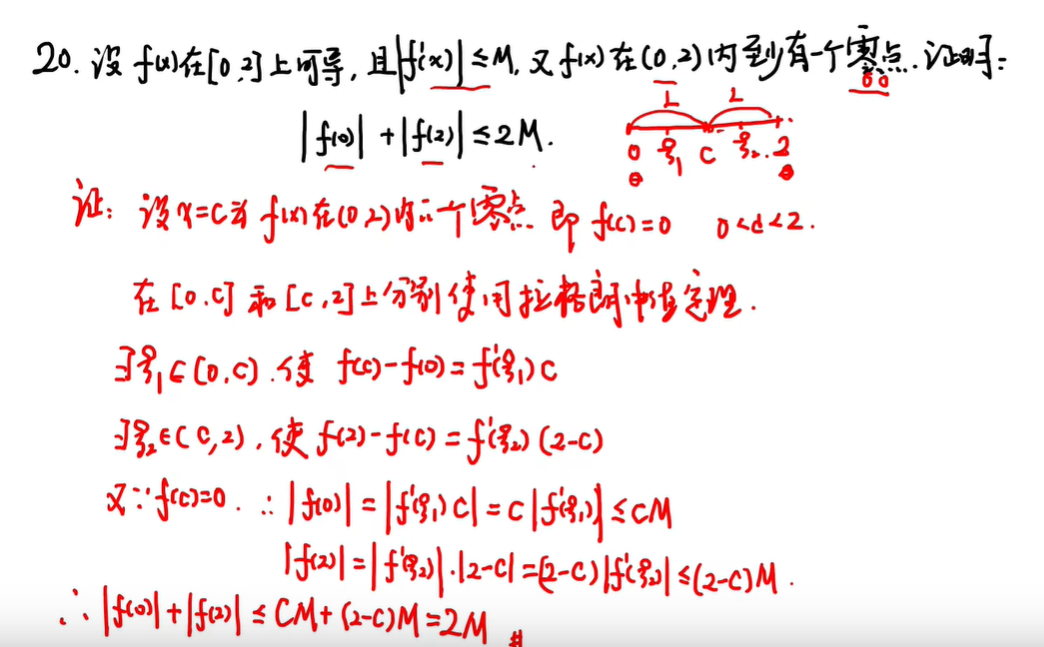 20. 设 f(x)在[0,2]上可导, 且|f'(x)|≤M, 又f(x)在(0,2)内至少有一个零点. 证明:
|f(0)| + |f(2)| ≤ 2M.
L L
0 ξ₁ C ξ₂ 2
证: 设x=c为f(x)在(0,2)内的一个零点 即 f(c)=0 0<c<2.
在[0,c]和[c,2]上分别使用拉格朗中值定理.
∃ξ₁∈(0,c).使 f(c)-f(0)=f'(ξ₁)c
∃ξ₂∈(c,2),使f(2)-f(c)=f'(ξ₂)(2-c)
又∵f(c)=0. ∴|f(0)|=|f'(ξ₁)c|=c|f'(ξ₁)|≤cM
|f(2)|=|f'(ξ₂)|·|2-c|=(2-c)|f'(ξ₂)|≤(2-c)M.
∴|f(0)|+|f(2)|≤CM+(2-c)M=2M #